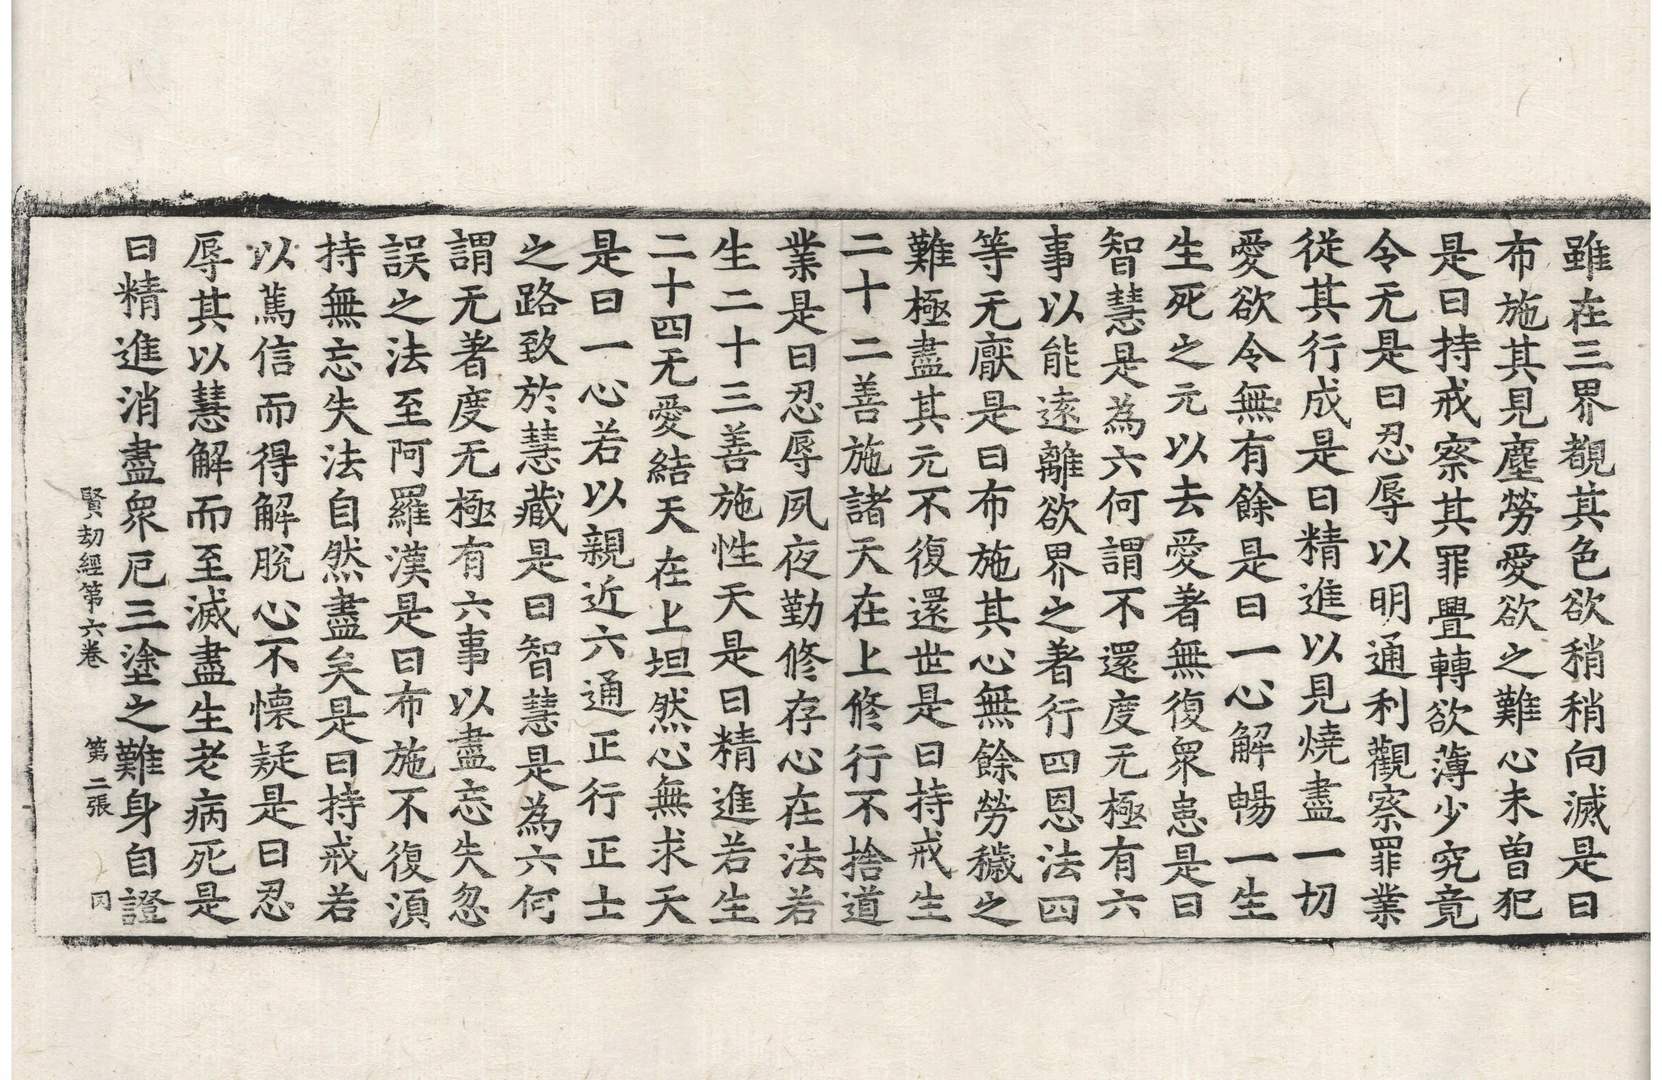 雖在三界覩其色欲稍稍向滅是曰
布施其見塵勞愛欲之難心未曽犯
是曰持戒察其罪舋轉欲薄少究竟
令无是曰忍辱以明通利觀察罪業
從其行成是曰精進以見燒盡一切
愛欲令無有餘是曰一心解暢一生
生死之元以去愛著無復衆恚是曰
智慧是為六何謂不還度无極有六
事以能遠離欲界之著行四恩法四
等无猒是曰布施其心無餘勞穢之
難極盡其元不復還世是曰持戒生
二十二善施諸天在上修行不捨道
業是曰忍辱夙夜勤修存心在法若
生二十三善施性天是曰精進若生
二十四无愛結天在上坦然心無求天
是曰一心若以親近六通正行正士
之路致於慧藏是曰智慧是為六何
謂无著度无極有六事以盡忘失忽
誤之法至阿羅漢是曰布施不復湏
持無忘失法自然盡矣是曰持戒若
以萬信而得解脫心不懷疑是曰忍
辱其以慧解而至滅盡生老病死是
曰精進消盡衆厄三塗之難身自證
賢劫經第六卷 第二張 冈